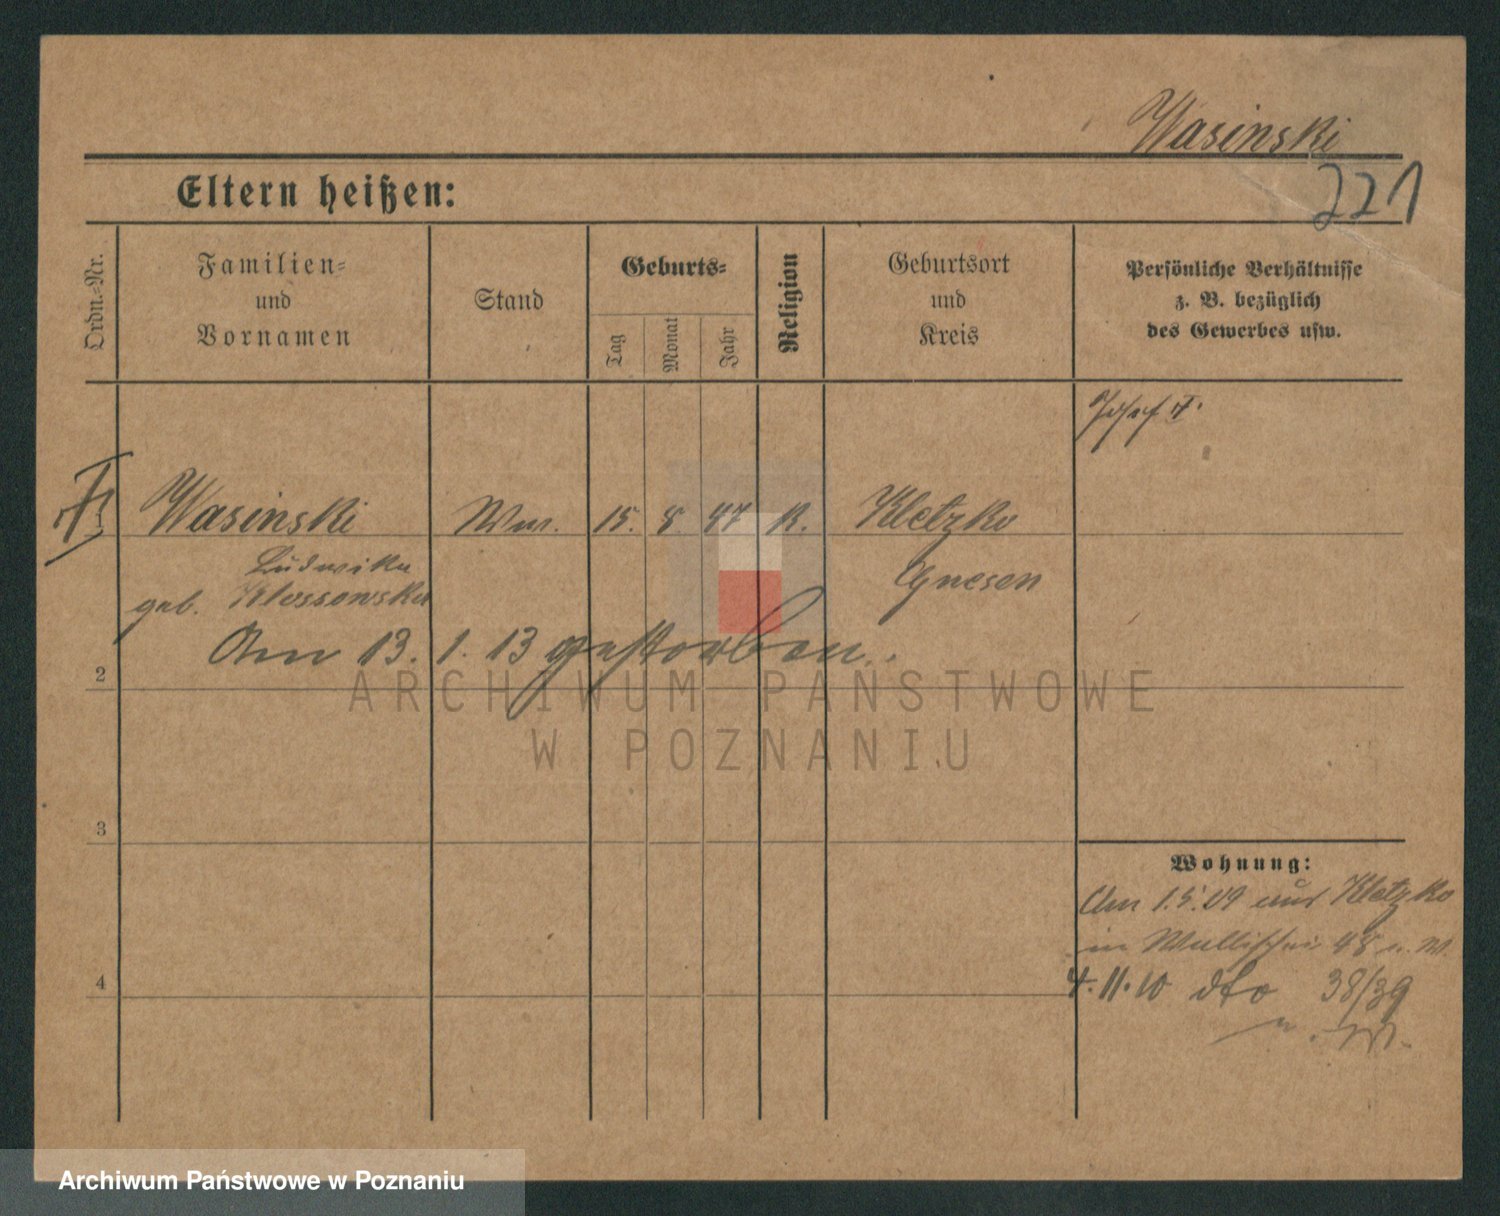 Wasinski
221
Eltern heißen:
Ordn.-Nr.
Familien-
und
Vornamen
Stand
Geburts-
Tag
Monat
Jahr
Religion
Geburtsort
und
Kreis
Persönliche Verhältnisse
z. B. bezüglich
des Gewerbes usw.
Josef
Wasinski Ww. 15. 8. 47 K. Kletzko
Ludwika Gnesen
geb. Klossowska
Am 13. 1. 13 gestorben.
2
3
4
Wohnung:
Am 1.5.09 aus Kletzko
in Wallischei 48
4.11.10 dto 38/39
ARCHIWUM PAŃSTWOWE
W POZNANIU
Archiwum Państwowe w Poznaniu